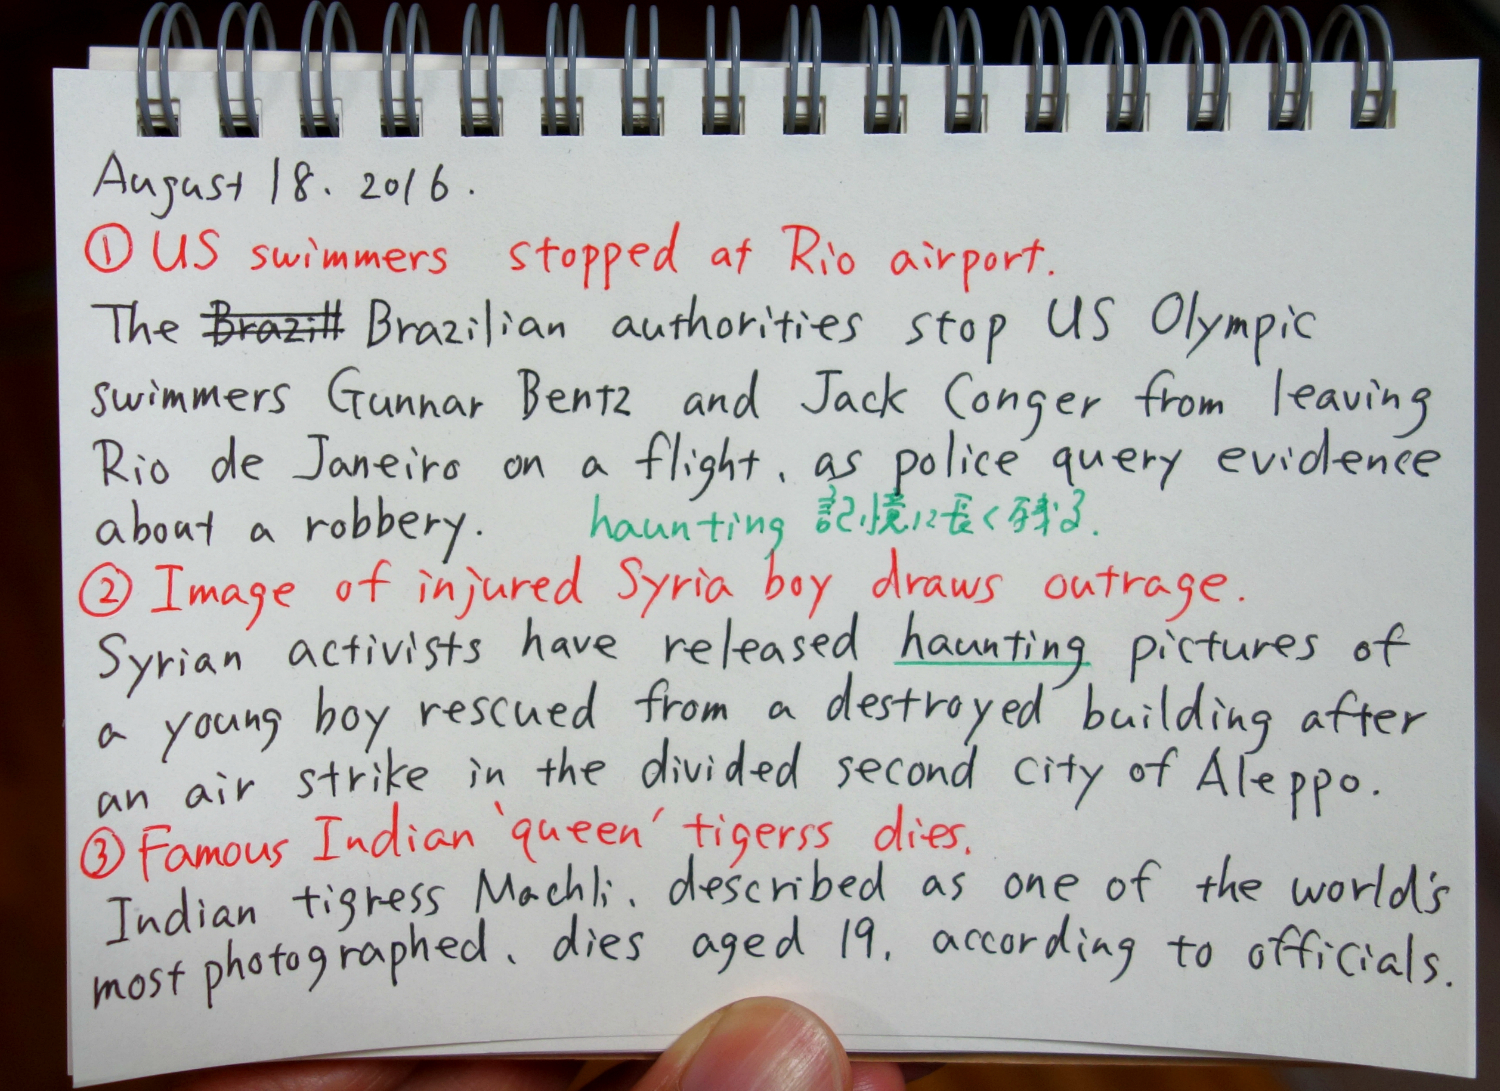 August 18. 2016.
① US swimmers stopped at Rio airport.
The Brazill Brazilian authorities stop US Olympic
swimmers Gunnar Bentz and Jack Conger from leaving
Rio de Janeiro on a flight, as police query evidence
about a robbery. haunting 記憶に長く残る.
② Image of injured Syria boy draws outrage.
Syrian activists have released haunting pictures of
a young boy rescued from a destroyed building after
an air strike in the divided second city of Aleppo.
③ Famous Indian 'queen' tigerss dies.
Indian tigress Machli, described as one of the world's
most photographed, dies aged 19, according to officials.